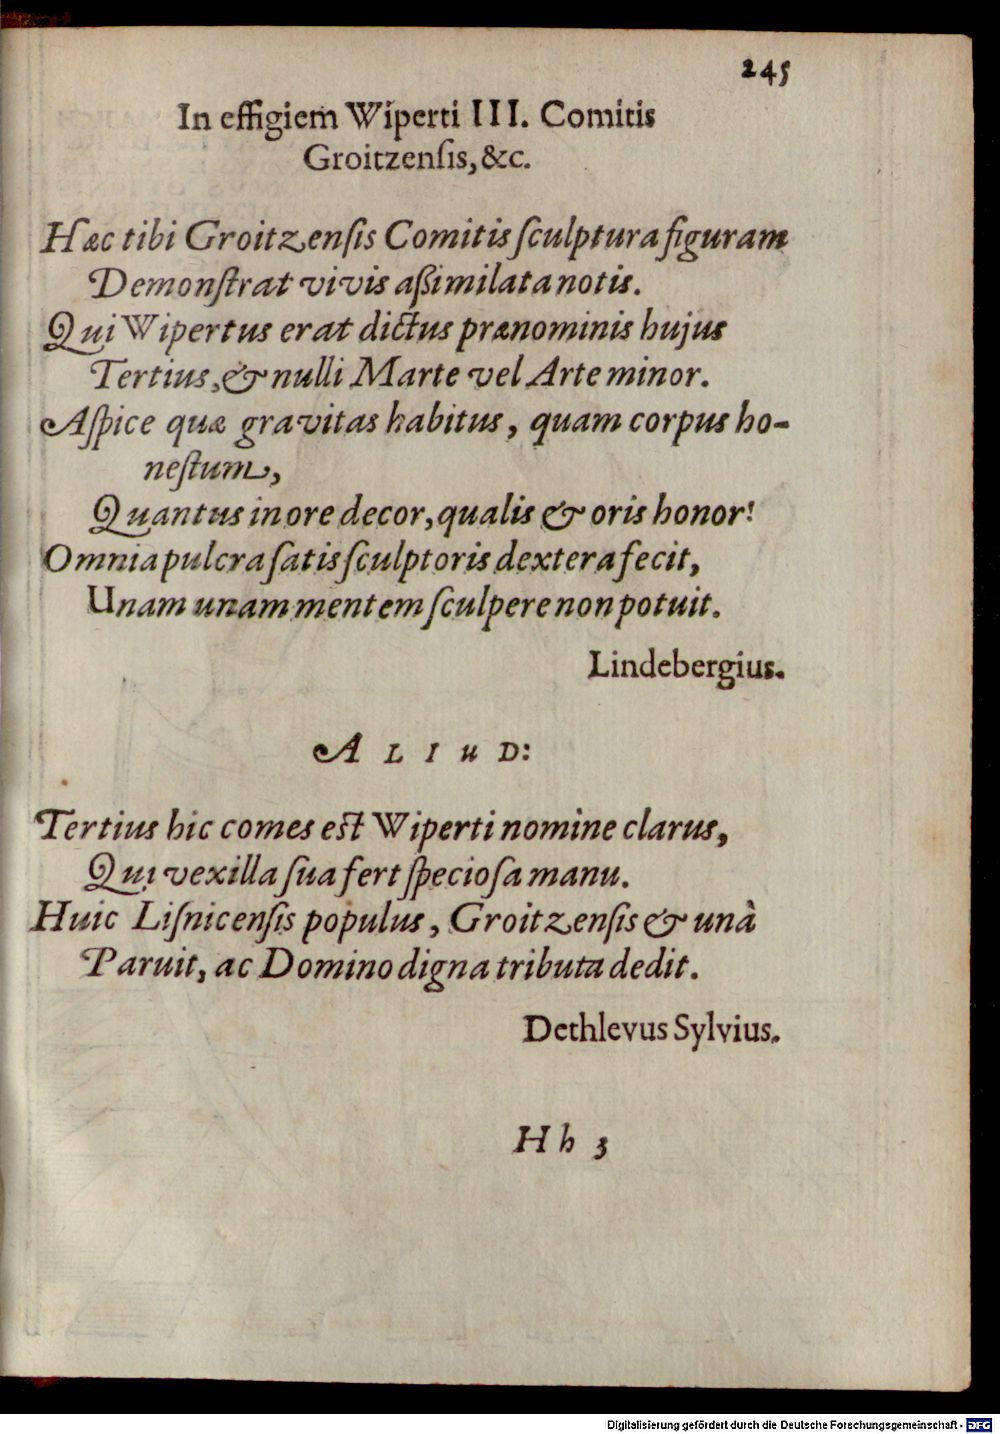 245
In effigiem Wiperti III. Comitis
Groitzenſis, &c.
Hæc tibi Groitzenſis Comitis ſculptura figuram
Demonſtrat vivis aßimilata notis.
Qui Wipertus erat dictus prænominis hujus
Tertius, & nulli Marte vel Arte minor.
Aſpice quæ gravitas habitus, quam corpus ho-
neſtum,
Quantus in ore decor, qualis & oris honor!
Omnia pulcra ſatis ſculptoris dextera fecit,
Unam unam mentem ſculpere non potuit.
Lindebergius.
ALIUD:
Tertius hic comes eſt Wiperti nomine clarus,
Qui vexilla ſua fert ſpecioſa manu.
Huic Liſnicenſis populus, Groitzenſis & unà
Paruit, ac Domino digna tributa dedit.
Dethlevus Sylvius.
Hh 3
Digitalisierung gefördert durch die Deutsche Forschungsgemeinschaft - DFG